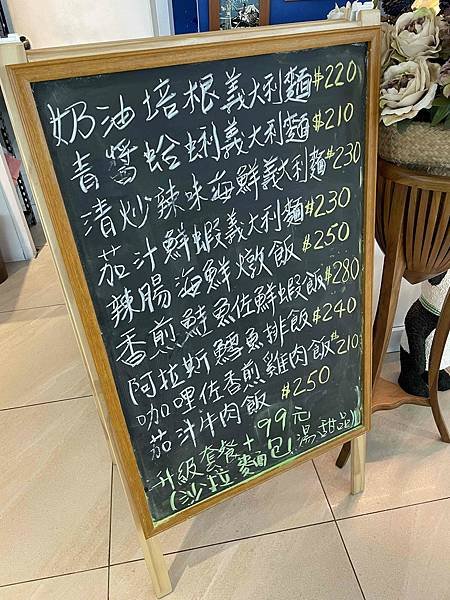 奶油培根義大利麵$220
青醬蛤蜊義大利麵$210
清炒辣味海鮮義大利麵$230
茄汁鮮蝦義大利麵$230
辣腸海鮮燉飯$250
香煎鱸魚佐鮮蝦飯$280
阿拉斯鱈魚排飯$240
咖哩佐香煎雞肉飯$210
茄汁牛肉飯 $250
升級套餐+99元
(沙拉麵包湯甜品)